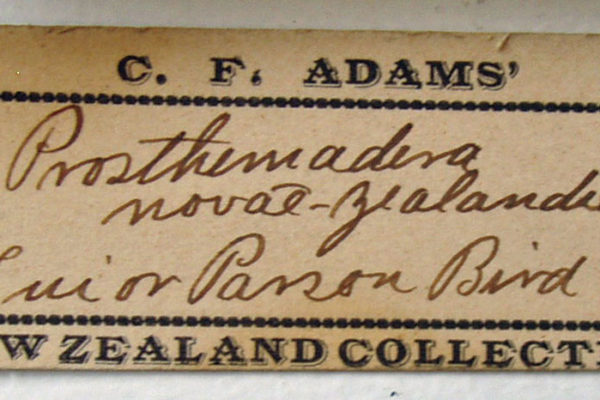 C. F. ADAMS'
Prosthemadera
novae-zealandi
Tui or Parson Bird
W ZEALAND COLLECTI